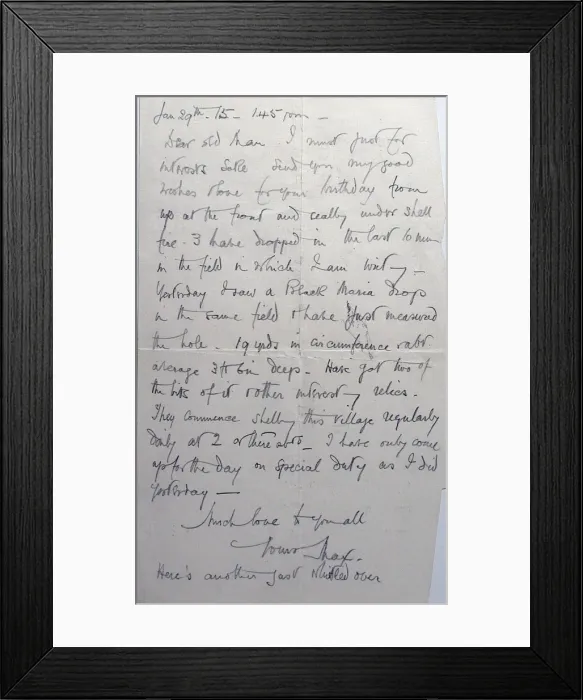 Jan 29th. 15 - 1.45 pm -
Dear old man I must just for
interests sake send you my good
wishes &c for your birthday from
up at the front and really under shell
fire. 3 have dropped in the last 10 min
in the field in which I am writing -
Yesterday I saw a Black Maria drop
in the same field & have just measured
the hole. 19 yds in circumference & abt
average 3ft 6in deep. Have got two of
the bits of it & other interesting relics.
They commence shelling this village regularly
daily at 2 or thereabts - I have only come
up for the day on special duty as I did
yesterday -
Much love to you all
Yours Max.
Here's another just whistled over